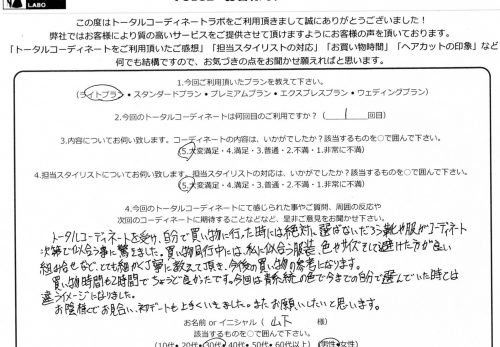 LABO
この度はトータルコーディネートラボをご利用頂きまして誠にありがとうございました！
弊社ではお客様により質の高いサービスをご提供させて頂けますようにお客様の声を聞いております。
「トータルコーディネートをご利用頂いたご感想」「担当スタイリストの対応」「お買い物時間」「ヘアカットの印象」など
何でも結構ですので、お気づきの点をお聞かせ願えればと思います。
1.今回ご利用頂いたプランを教えて下さい。
(ライトプラン・スタンダードプラン・プレミアムプラン・エクスプレスプラン・ウェディングプラン)
2.今回のトータルコーディネートは何回目のご利用ですか？（ 1 回目）
3.内容についてお伺い致します。コーディネートの内容は、いかがでしたか？該当するものを○で囲んで下さい。
(5.大変満足・4.満足・3.普通・2.不満・1.非常に不満)
4.担当スタイリストについてお伺い致します。担当スタイリストの対応は、いかがでしたか？該当するものを○で囲んで下さい。
(5.大変満足・4.満足・3.普通・2.不満・1.非常に不満)
4.今回のトータルコーディネートにて感じられた事やご質問、周囲の反応や
次回のコーディネートに期待することなどなど、是非ご意見をお聞かせ下さい。
トータルコーディネートを受け、自分で買い物に行った時には絶対に選ばないだろう靴や服がコーディネート
次第で似合う事に驚きました。買い物同行中には、私に似合う服装、色やサイズそして避けた方が良い
組み合せなど、とても細かく丁寧に教えて頂き、今後の買い物の参考になります。
買い物時間も2時間でちょうど良かったです。今回は青系統の色で今までの自分で選んでいた時とは
違うイメージになりました。
お陰様でお見合い、初デートも上手くいきました。またお願いしたいと思います。
お名前 or イニシャル（ 山下 様）
(10代・20代・30代・40代・50代・60代以上) (男性・女性)